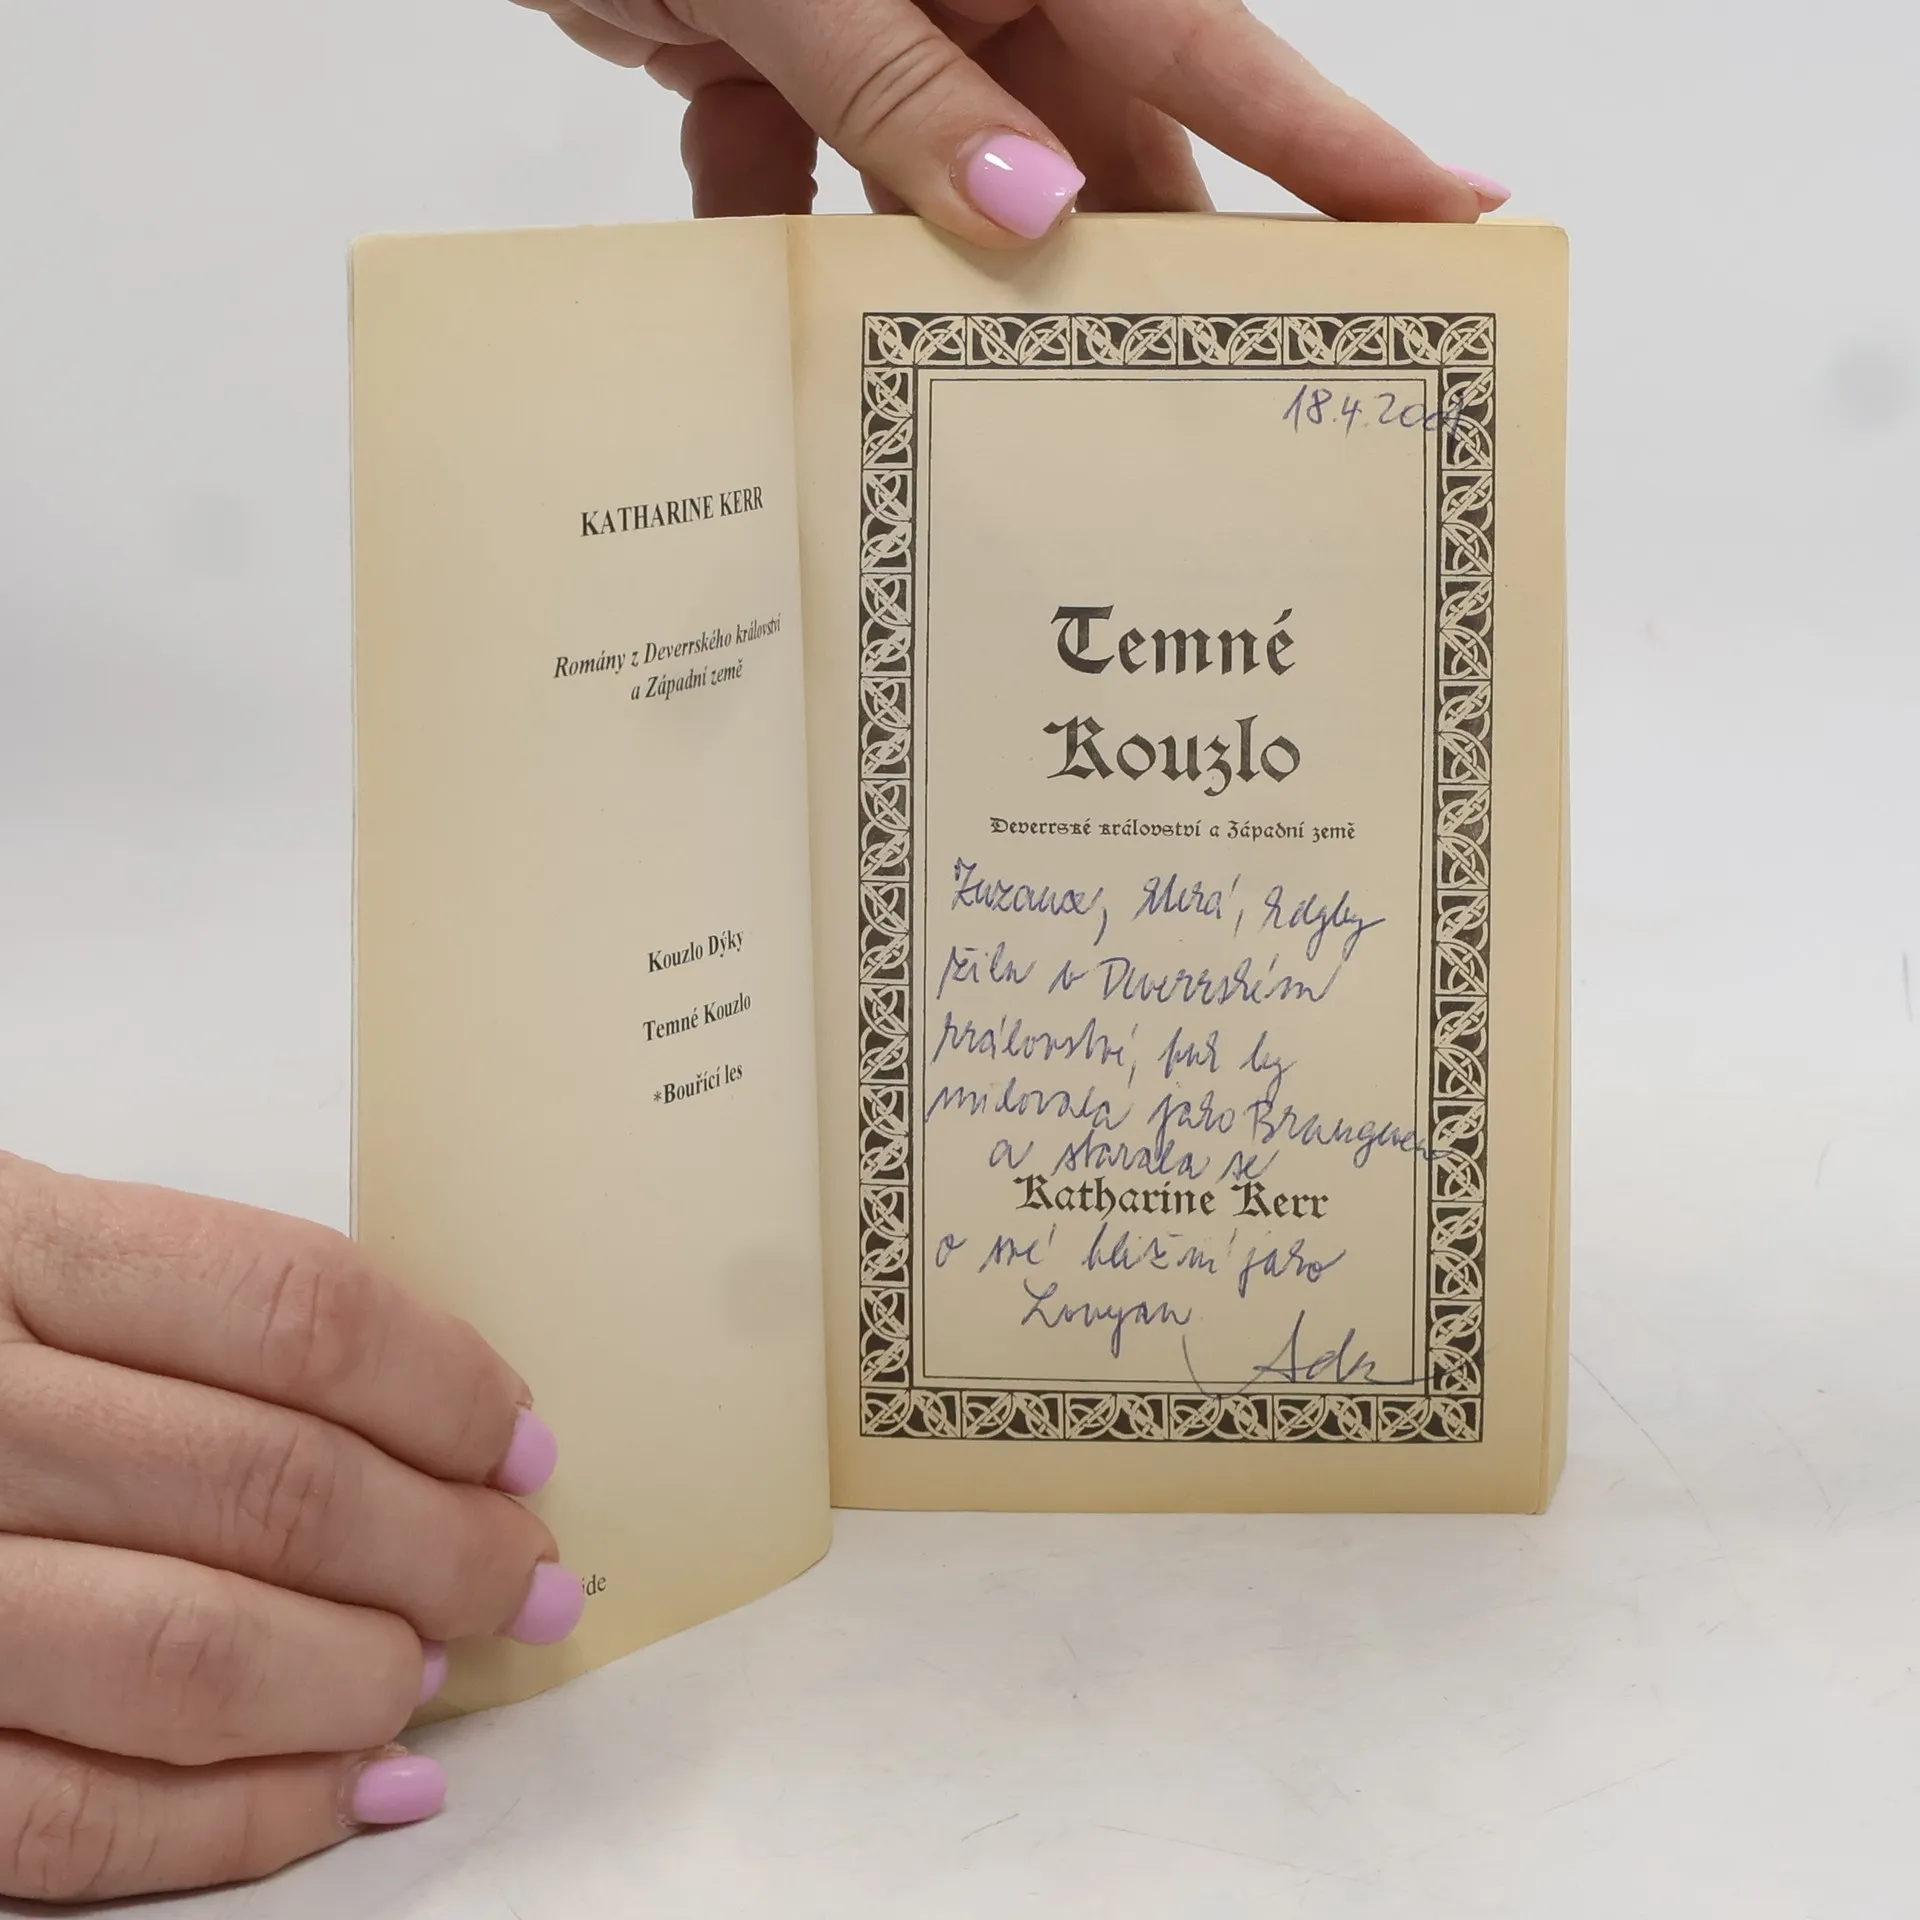 KATHARINE KERR
Romány z Deverrského království
a Západní země
Kouzlo Dýky
Temné Kouzlo
*Bouřící les
ide
18.4.2001
Temné
Kouzlo
Deverrské království a Západní země
Zuzance, která, kdyby
žila v Deverrském
království, pak by
milovala jako Brangwen
a starala se
Katharine Kerr
o své bližní jako
Lovyan